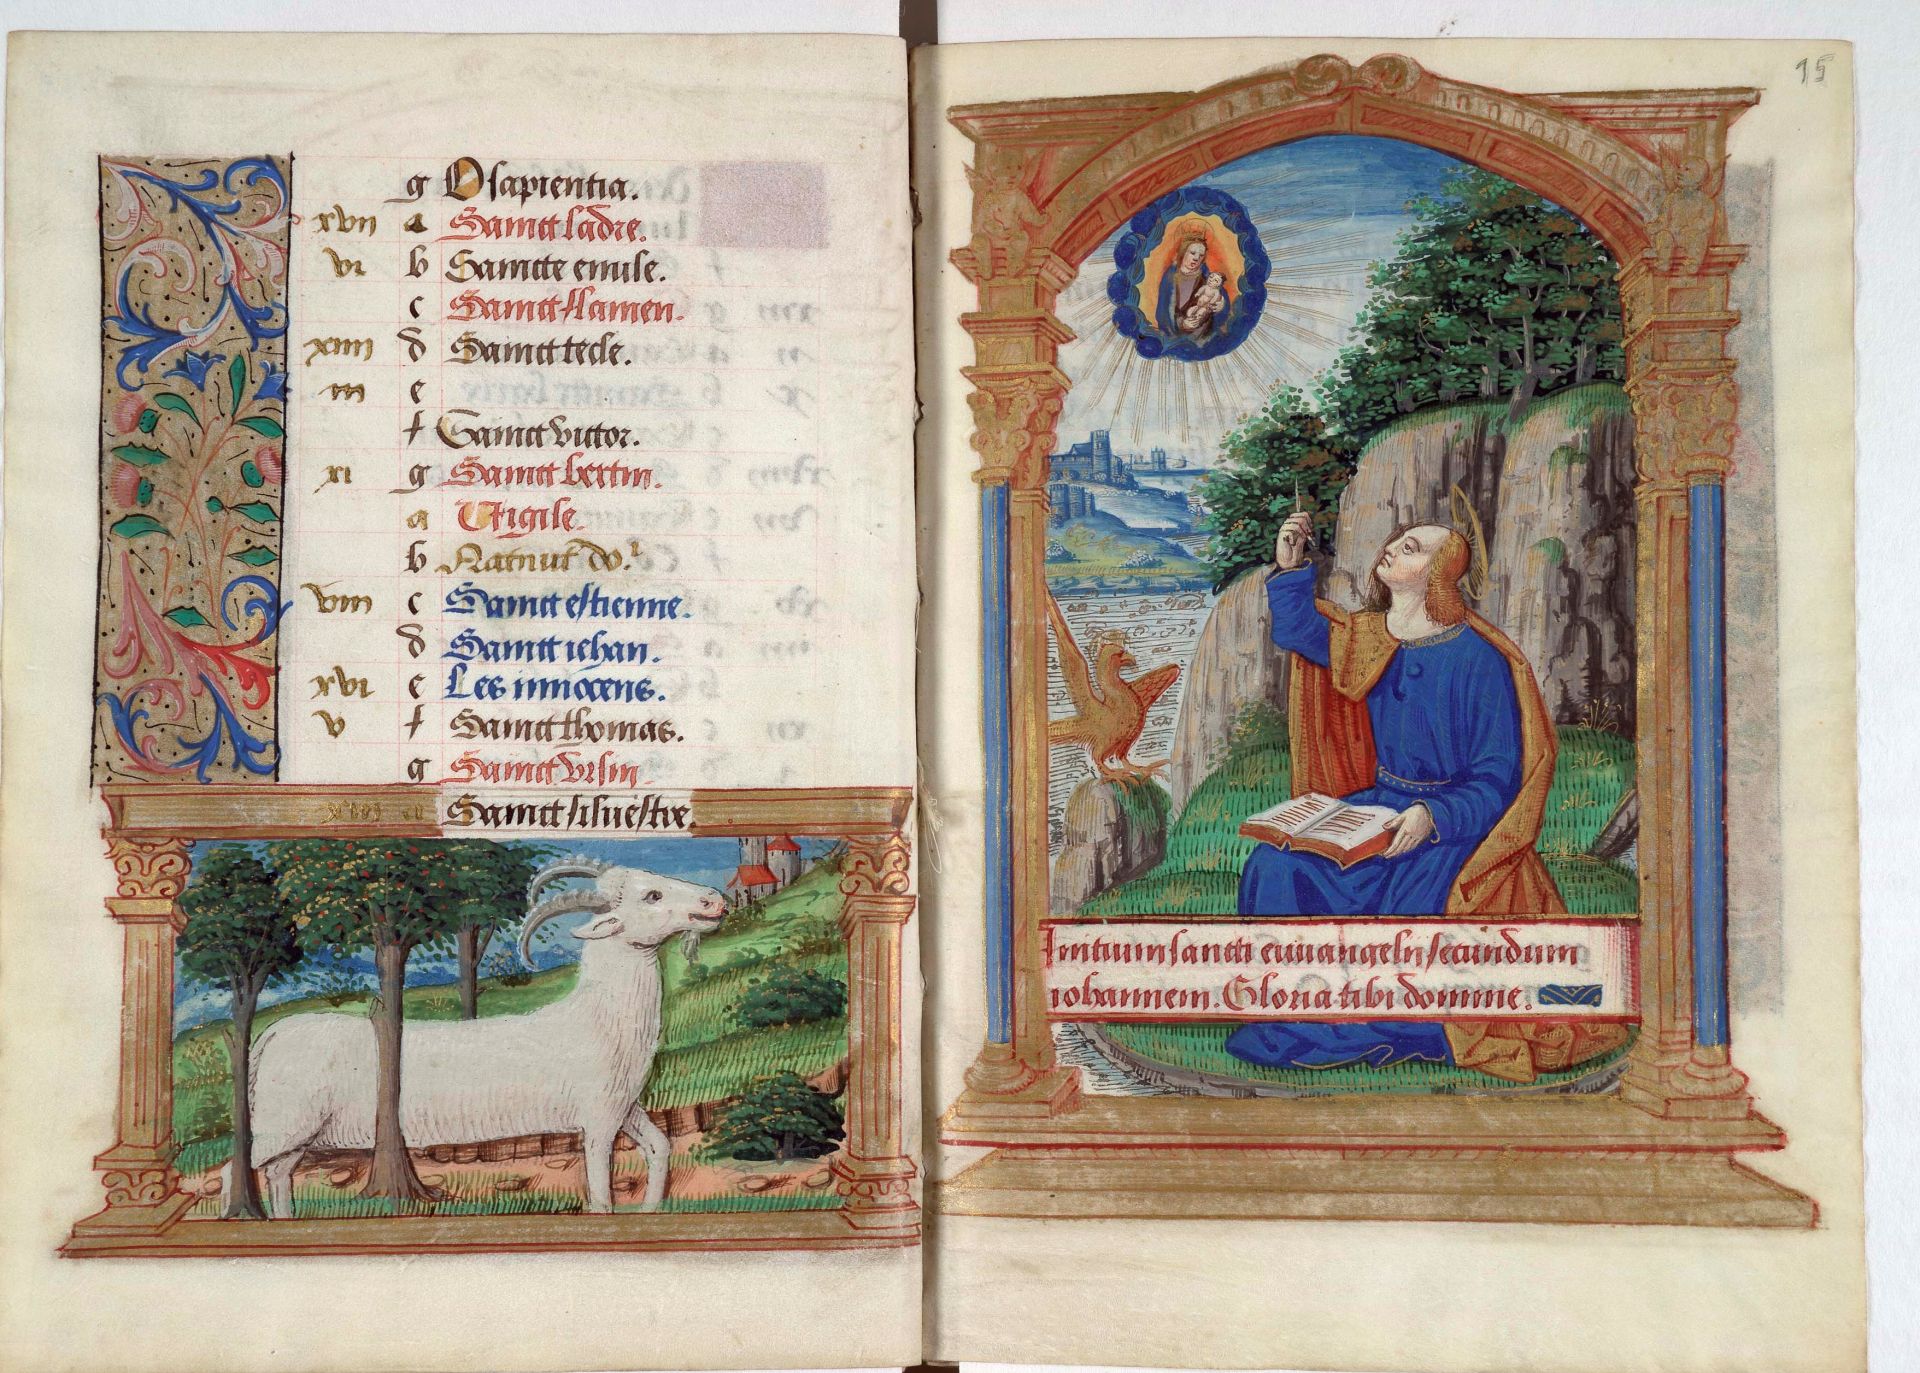 g O sapientia.
xvii a Sainct ladre.
vi b Saincte emise.
c Sainct flamen.
xiiii d Sainct tecle.
iii e
f Sainct victor.
xi g Sainct bertin.
a Vigile.
b Natiuit do.
viii c Sainct estienne.
d Sainct iehan.
xvi e Les innocens.
v f Sainct thomas.
g Sainct vrsin.
Sainct siluestre.
15
Initium sancti euuangelii secundum
iohannem. Gloria tibi domine.